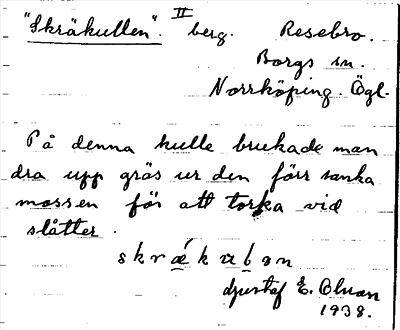 "Skräkullen". II berg. Resebro.
Borgs sn.
Norrköping. Ögl.
På denna kulle brukade man
dra upp gräs ur den förr sanka
mossen för att torka vid
slåtter.
Gustaf E. Bluan
1938.